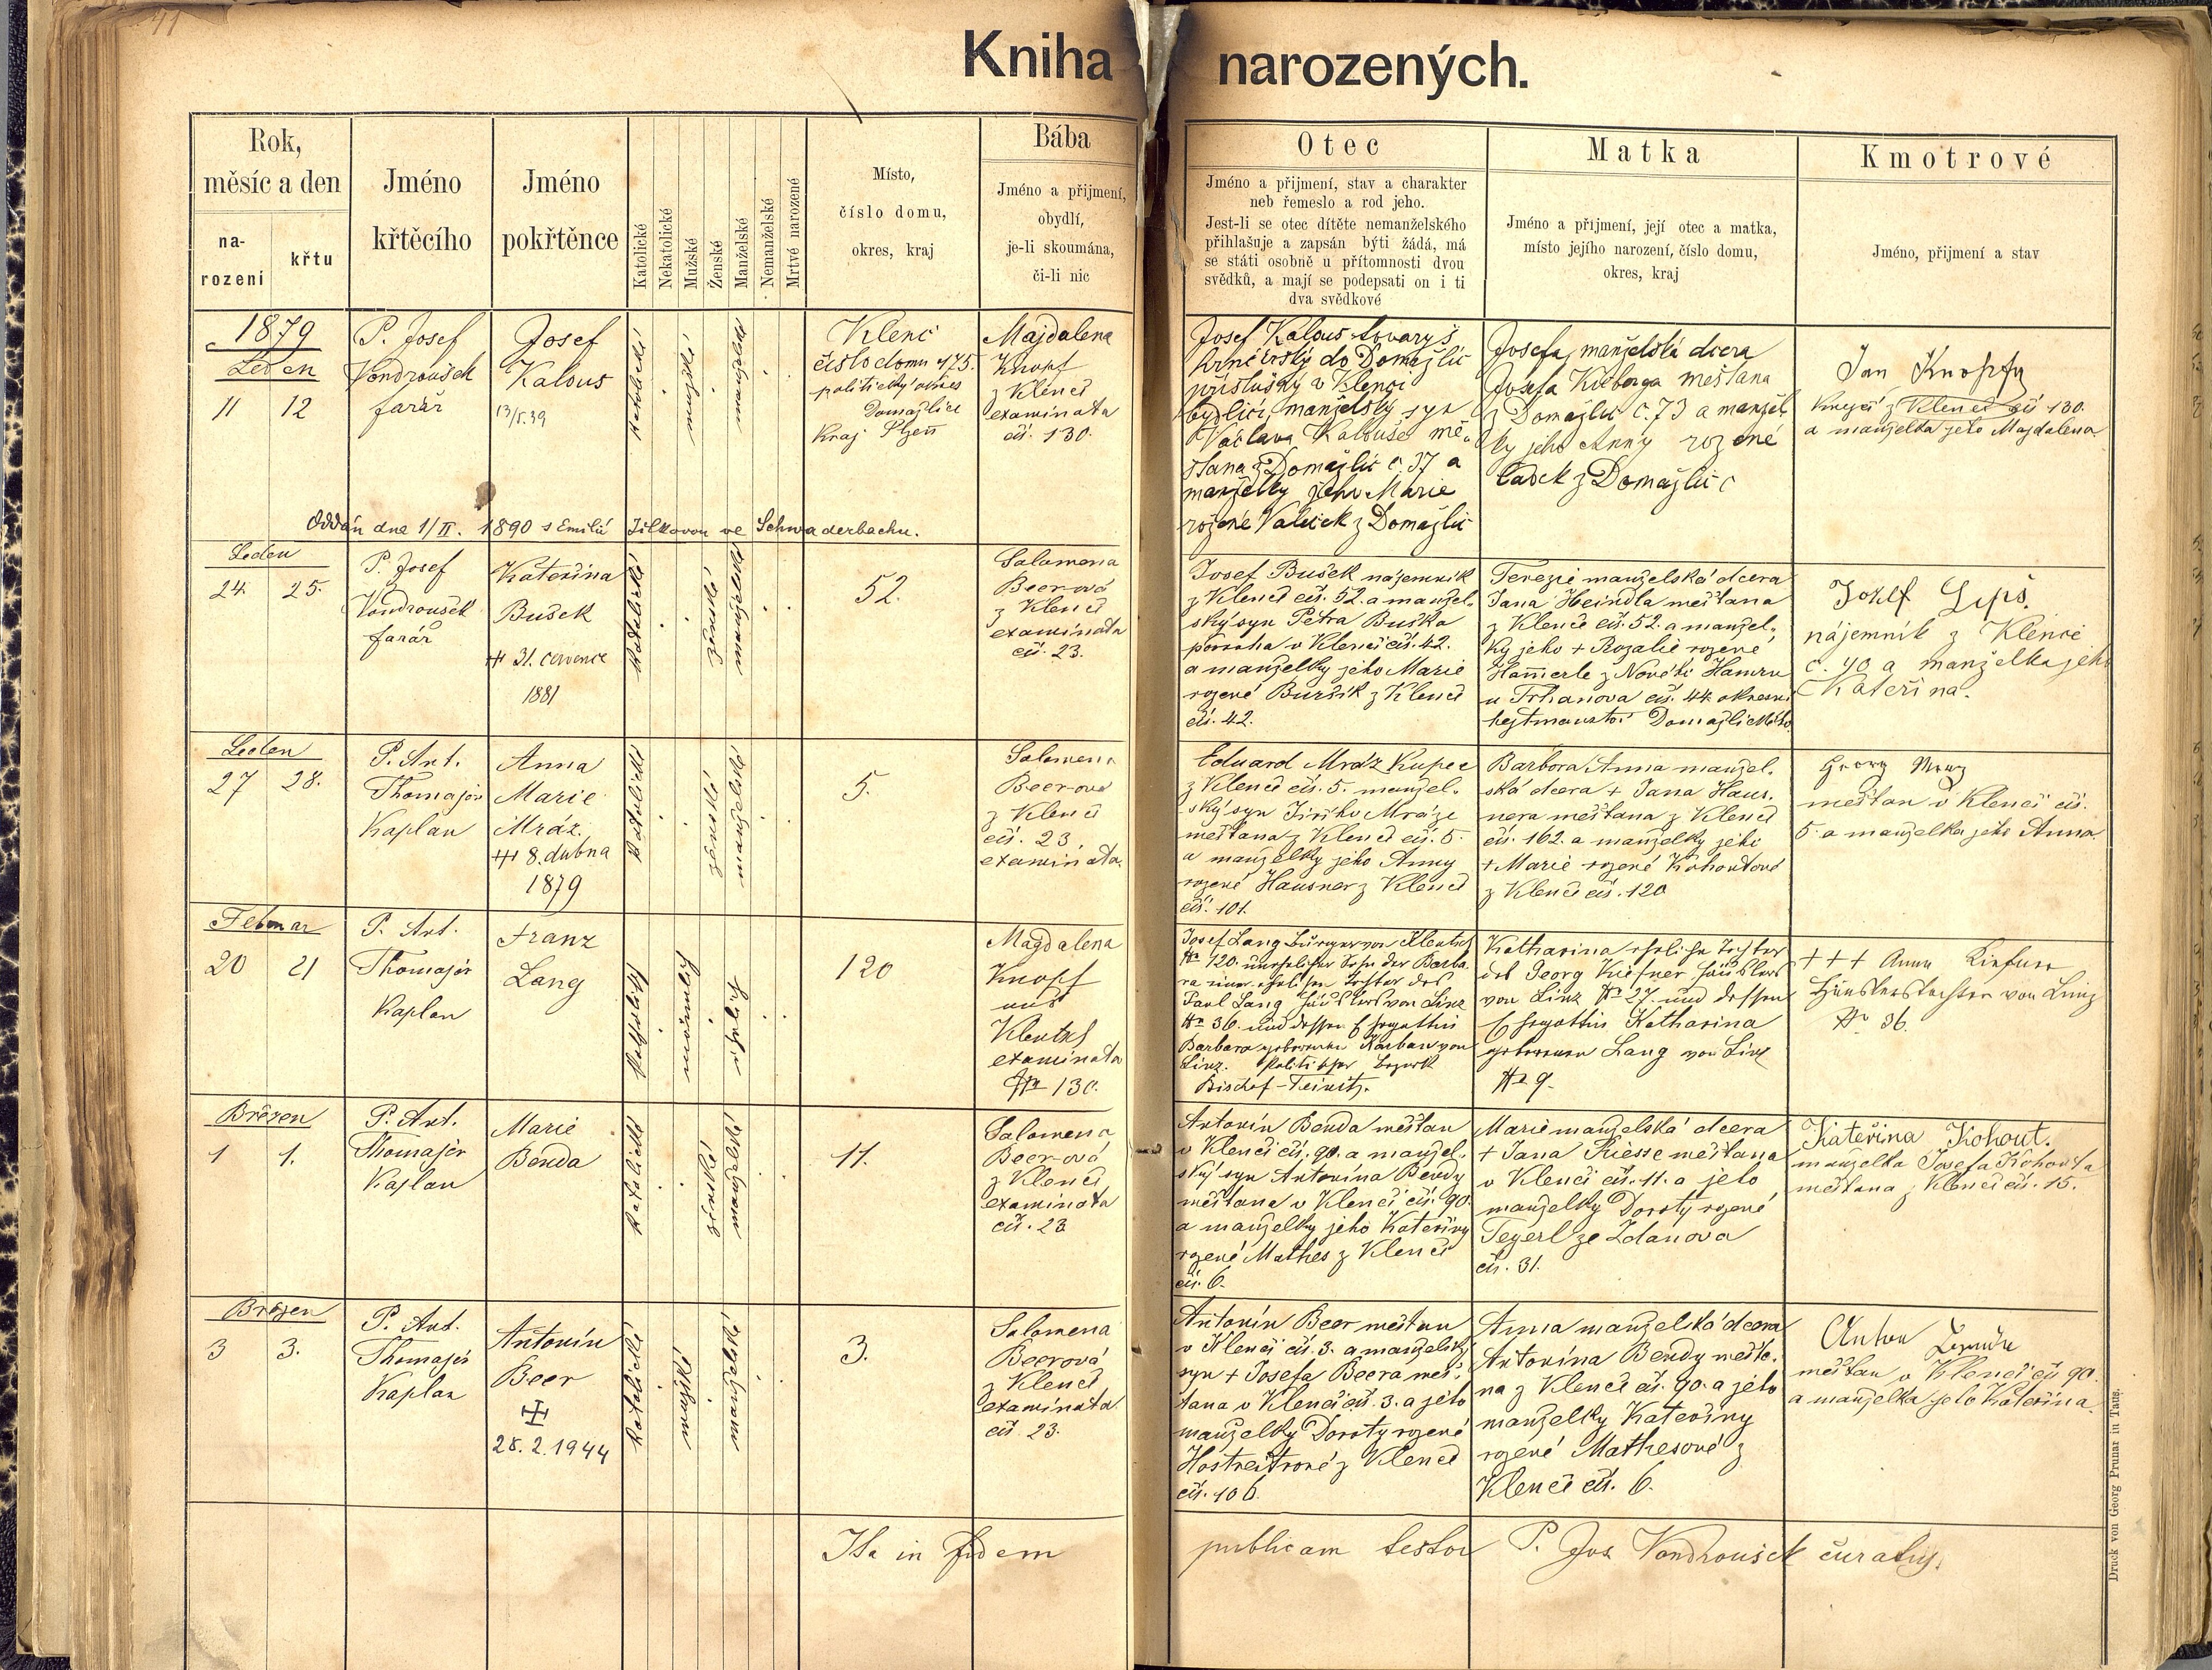 Kniha narozených.
Rok,
měsíc a den
na-
rození
křtu
Jméno
křtěcího
Jméno
pokřtěnce
Katolické
Nekatolické
Mužské
Ženské
Manželské
Nemanželské
Mrtvě narozené
Místo,
číslo domu,
okres, kraj
Bába
Jméno a přijmení,
obydlí,
je-li skoumána,
či-li nic
Otec
Jméno a přijmení, stav a charakter
neb řemeslo a rod jeho.
Jest-li se otec dítěte nemanželského
přihlašuje a zapsán býti žádá, má
se státi osobně u přítomnosti dvou
svědků, a mají se podepsati on i ti
dva svědkové
Matka
Jméno a příjmení, její otec a matka,
místo jejího narození, číslo domu,
okres, kraj
Kmotrové
Jméno, přijmení a stav
1879
Leden
11 12
P. Josef
Vondroušek
farář
Josef
Kalous
katolické
mužské
manželské
Klenč
číslo domu 175.
politický okres
Domažlice
Kraj Plzeň
Majdalena
Knopf
z Klenčí
examinata
čís. 130.
Josef Kalous tovaryš
hrnčířský do Domažlic
příslušný v Klenči
bydlící, manželský syn
Václava Kalouse mě-
šťana z Domažlic č. 37 a
manželky jeho Marie
rozené Valeček z Domažlic
Josefa, manželská dcera
Josefa měšťana
z Domažlic č. 73 a manžel-
ky jeho Anny rozené
z Domažlic
Jan Knopf
z Klenčí čís 130.
a manželka jeho Majdalena
Oddán dne 1/II. 1890 s Emilií Jílkovou ve Schwaderbachu.
Leden
24. 25.
P. Josef
Vondroušek
farář
Kateřina
Bušek
31. července
1881
katolické
ženské
manželské
52.
Salomena
Beer-ová
z Klenčí
examinata
čís. 23.
Josef Bušek nájemník
z Klenčí čís. 52. a manžel-
ský syn Petra Buška
v Klenčí čís. 42.
a manželky jeho Marie
rozené Buršík z Klenčí
čís. 42.
Terezie manželská dcera
Jana Heindla měšťana
z Klenčí čís. 52. a manžel-
ky jeho + Rozalie rozené
Hammerle z Nových Hamrů
u Trhanova čís. 44. okresní
hejtmanství Domažlického
Josef Lips.
nájemník z Klenčí
č. 40 a manželka jeho
Kateřina.
Leden
27 28.
P. Ant.
Thomajer
Kaplan
Anna
Marie
Mráz.
8. dubna
1879
katolické
ženské
manželské
5.
Salomena
Beer-ová
z Klenčí
čís. 23,
examinata.
Eduard Mráz Kupec
z Klenčí čís. 5. manžel-
ský syn Jiřího Mráze
měšťana z Klenčí čís. 5.
a manželky jeho Anny
rozené Hausner z Klenčí
čís. 101.
Barbora Anna manžel-
ská dcera + Jana Haus-
nera měšťana z Klenčí
čís. 162. a manželky jeho
+ Marie rozené Kohoutové
z Klenčí čís. 120
Georg Mraz
měšťan v Klenčí čís.
5. a manželka jeho Anna
Februar
20 21
P. Ant.
Thomajer
Kaplan
Franz
Lang
katholisch
männlich
ehelich
120
Magdalena
Knopf
aus
Klentsch
examinata
No 130.
Josef Lang Bürger von Klentsch
No 120. unehelicher Sohn der Barba-
ra einer ehelichen Tochter des
Paul Lang Häuslers von Linz
No 36. und dessen Ehegattin
Barbara geborenen Karban von
Linz. Politischer Bezirk
Bischof-Teinitz.
Katharina eheliche Tochter
des Georg Kiefner Häuslers
von Linz No 27. und dessen
Ehegattin Katharina
geborenen Lang von Linz
No 9.
+++ Anna Kiefner
Häuslerstochter von Linz
No 36.
Březen
1 1.
P. Ant.
Thomajer
Kaplan
Marie
Benda
katolické
ženské
manželské
11.
Salomena
Beer-ová
z Klenčí
examinata
čís. 23
Antonín Benda měšťan
v Klenčí čís. 90. a manžel-
ský syn Antonína Bendy
měšťana v Klenčí čís. 90.
a manželky jeho Kateřiny
rozené Mathes z Klenčí
čís. 6.
Marie manželská dcera
+ Jana Riesse měšťana
v Klenčí čís. 11. a jeho
manželky Doroty rozené
Tegerl ze Ždanova
čís. 31.
Kateřina Kohout.
manželka Josefa Kohouta
měšťana z Klenčí čís. 15.
Březen
3 3.
P. Ant.
Thomajer
Kaplan
Antonín
Beer
28.2.1944
katolické
mužské
manželské
3.
Salomena
Beerová
z Klenčí
examinata
čís 23.
Antonín Beer měšťan
v Klenčí čís. 3. a manželský
syn + Josefa Beera měš-
ťana v Klenčí čís. 3. a jeho
manželky Doroty rozené
z Klenčí
čís. 106.
Anna manželská dcera
Antonína Bendy měšťa-
na z Klenčí čís. 90. a jeho
manželky Kateřiny
rozené Mathesové z
Klenčí čís. 6.
Anton
měšťan v Klenčí čís 90.
a manželka jeho Kateřina.
Ita in fidem publicam testor P. Jos Vondroušek
Druck von Georg Prunar in Taus.